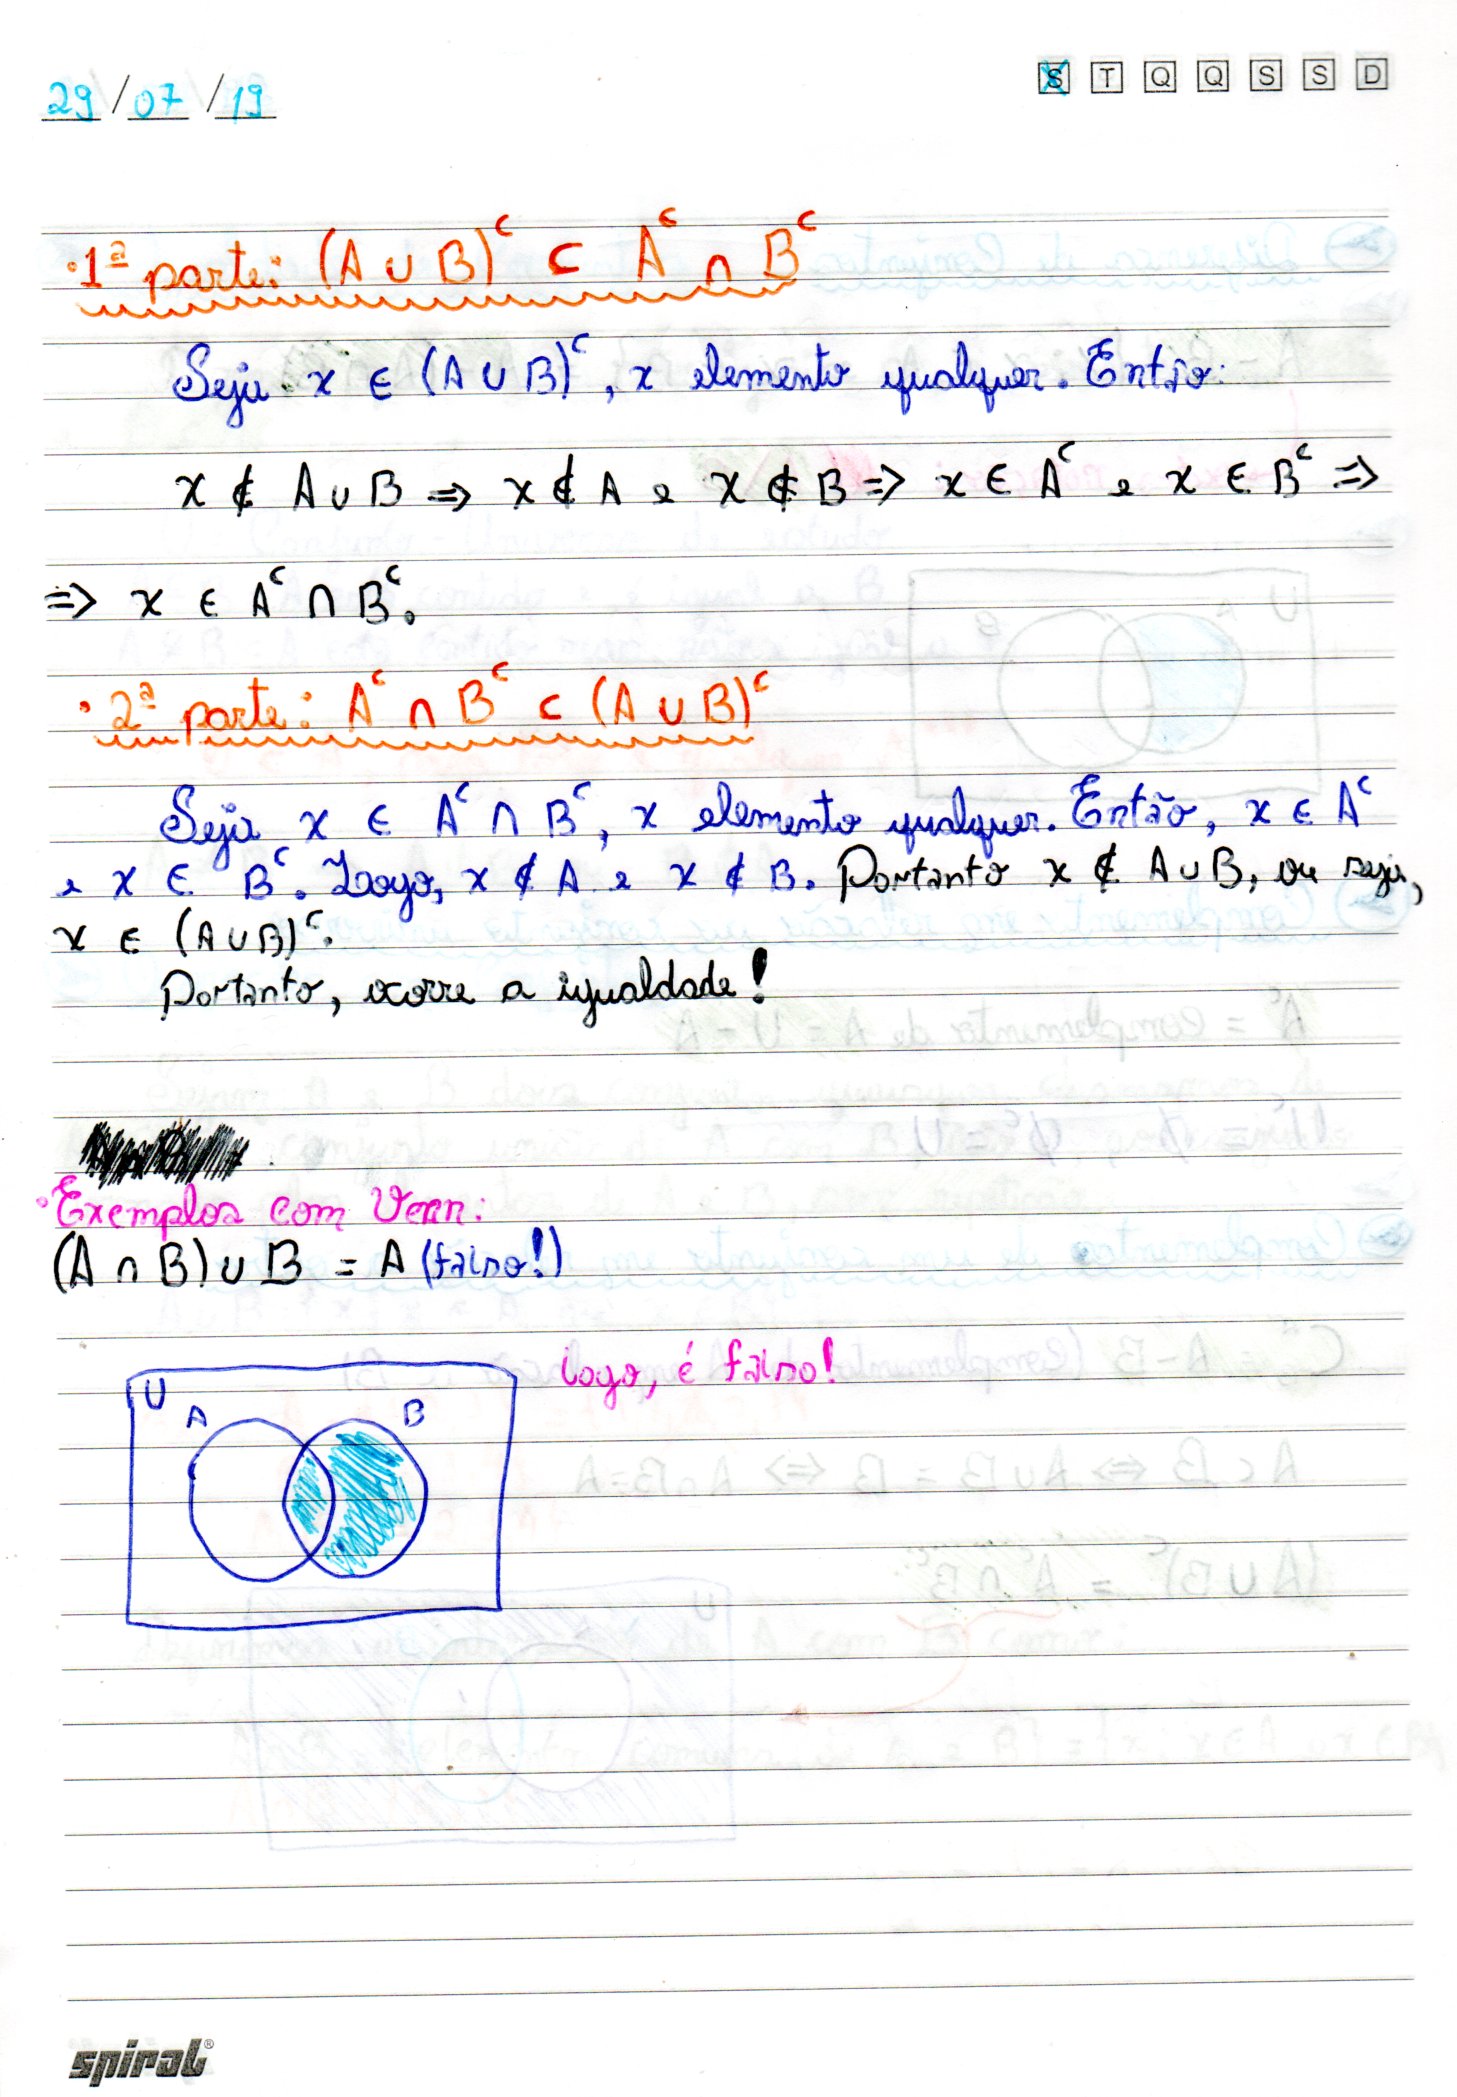 29/07/19
S T Q Q S S D
• 1ª parte: (A ∪ B)ᶜ ⊂ Aᶜ ∩ Bᶜ
Seja x ∈ (A ∪ B)ᶜ, x elemento qualquer. Então:
x ∉ A ∪ B ⇒ x ∉ A e x ∉ B ⇒ x ∈ Aᶜ e x ∈ Bᶜ ⇒
⇒ x ∈ Aᶜ ∩ Bᶜ.
• 2ª parte: Aᶜ ∩ Bᶜ ⊂ (A ∪ B)ᶜ
Seja x ∈ Aᶜ ∩ Bᶜ, x elemento qualquer. Então, x ∈ Aᶜ
e x ∈ Bᶜ. Logo, x ∉ A e x ∉ B. Portanto x ∉ A ∪ B, ou seja,
x ∈ (A ∪ B)ᶜ.
Portanto, ocorre a igualdade!
• Exemplos com Venn:
(A ∩ B) ∪ B = A (falso!)
logo, é falso!
U
A B
spiral®